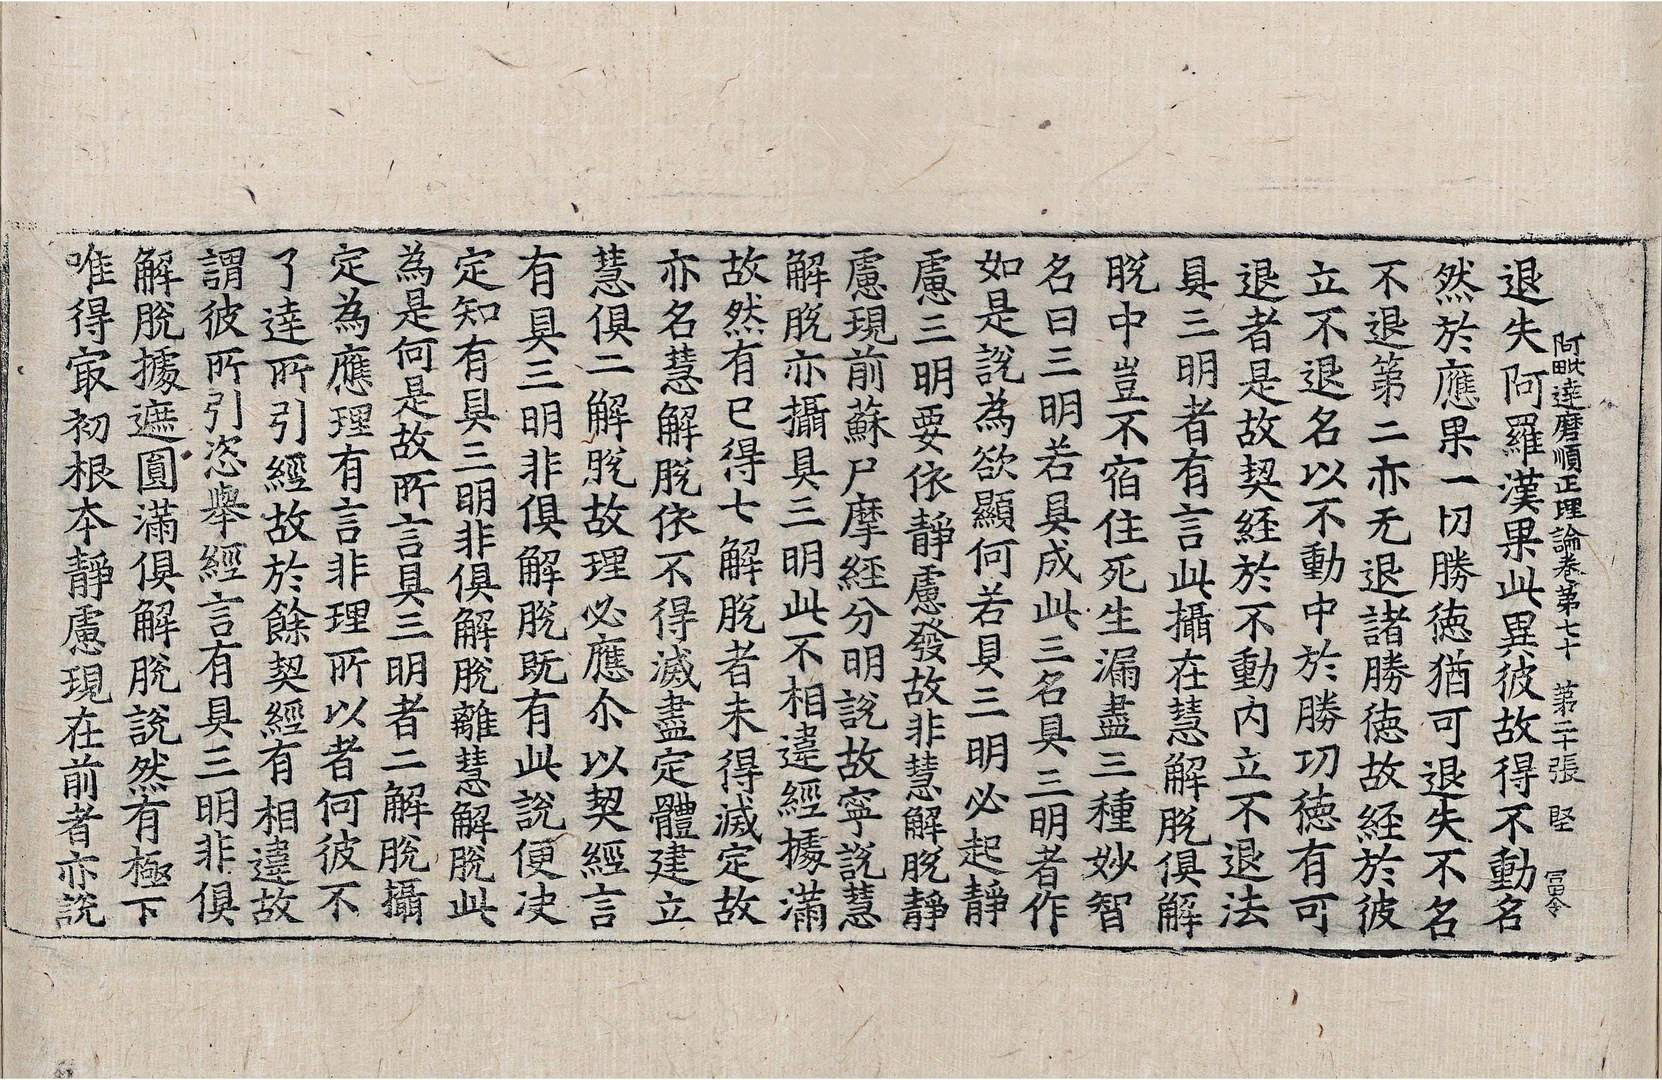 阿毗達磨順正理論卷第七十 第二十張 堅
退失阿羅漢果此異彼故得不動名
然於應果一切勝徳猶可退失不名
不退第二亦无退諸勝徳故經於彼
立不退名以不動中於勝功徳有可
退者是故契經於不動內立不退法
具三明者有言此攝在慧解脫俱解
脫中豈不宿住死生漏盡三種妙智
名曰三明若具成此三名具三明者作
如是說為欲顯何若具三明必起靜
慮三明要依靜慮發故非慧解脫靜
慮現前蘇尸摩經分明說故寧說慧
解脫亦攝具三明此不相違經據滿
故然有已得七解脫者未得滅定故
亦名慧解脫依不得滅盡定體建立
慧俱二解脫故理必應尒以契經言
有具三明非俱解脫既有此說便决
定知有具三明非俱解脫離慧解脫此
為是何是故所言具三明者二解脫攝
定為應理有言非理所以者何彼不
了達所引經故於餘契經有相違故
謂彼所引恣舉經言有具三明非俱
解脫據遮圓滿俱解脫說然有極下
唯得㝡初根本靜慮現在前者亦說